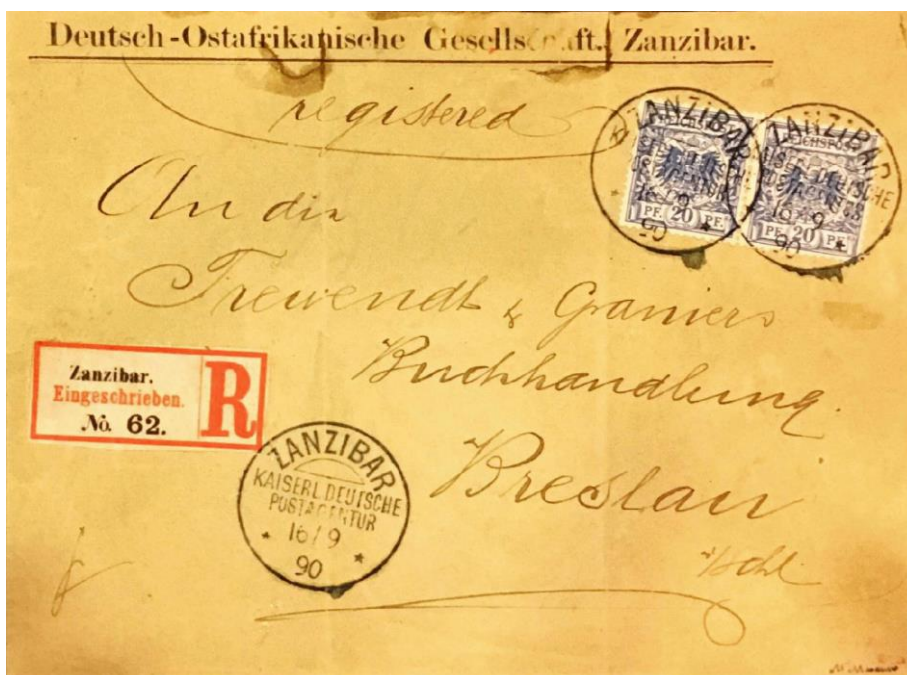 Deutsch-Ostafrikanische Gesellschaft. Zanzibar.
registered
ZANZIBAR
KAISERL. DEUTSCHE
POSTAGENTUR
16/9
90
REICHSPOST
PF. 20 PF.
ZANZIBAR
KAISERL. DEUTSCHE
POSTAGENTUR
16/9
90
REICHSPOST
PF. 20 PF.
An die
Trewendt & Graniers
Buchhandlung.
Breslau
i/Schl.
Zanzibar.
Eingeschrieben.
No. 62.
R
ZANZIBAR
KAISERL. DEUTSCHE
POSTAGENTUR
16/9
90